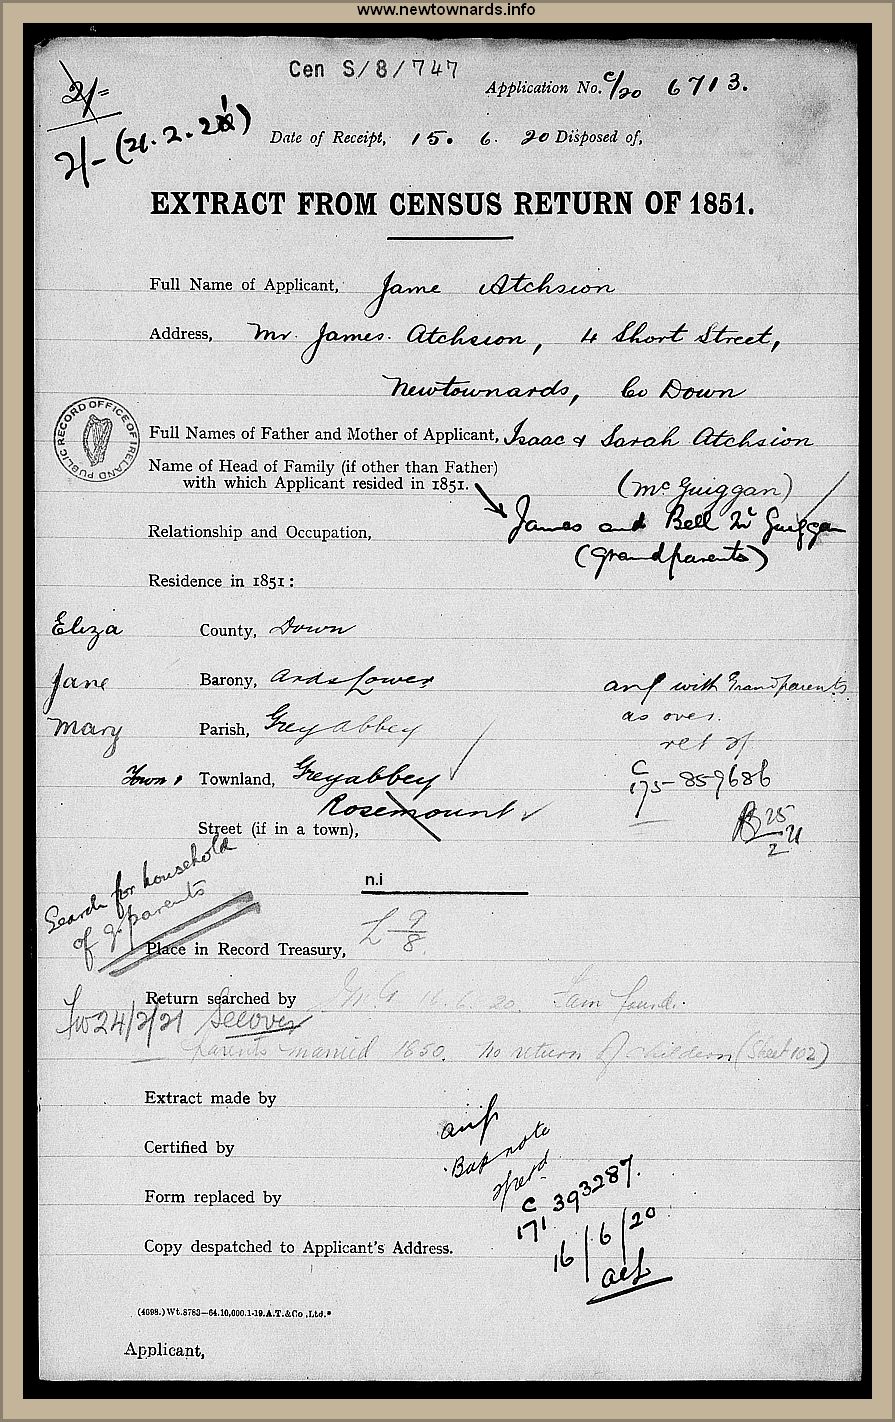 www.newtownards.info
Cen S/8/747
2/-
Application No. C/20 6713.
2/- (21.2.21)
Date of Receipt, 15. 6. 20 Disposed of,
EXTRACT FROM CENSUS RETURN OF 1851.
Full Name of Applicant, Jane Atchsion
Address, Mr. James. Atchsion, 4 Short Street,
Newtownards, Co Down
PUBLIC RECORD OFFICE OF IRELAND
Full Names of Father and Mother of Applicant, Isaac & Sarah Atchsion
Name of Head of Family (if other than Father)
with which Applicant resided in 1851.
(Mc Guiggan)
James and Bell Mc Guiggan
Relationship and Occupation,
(Grandparents)
Residence in 1851:
Eliza
County, Down
Jane
Barony, Ards Lower
with Grandparents
as over.
Mary
Parish, Grey abbey
ret
Town, Townland, Greyabbey
C
175-859686
Rosemount
Street (if in a town),
25
2 21
n.i
Search for household
of g. parents
Place in Record Treasury, L 9/8.
Return searched by McG 16.6.20. Fam found.
24/2/21 See over
parents married 1850. No return of children (Sheet 102)
Extract made by
Certified by
note
Form replaced by
C 393287.
171
16/6/20
Copy despatched to Applicant's Address.
(4698.) Wt.8783—64.10,000.1-19.A.T.&Co.,Ltd.
Applicant,